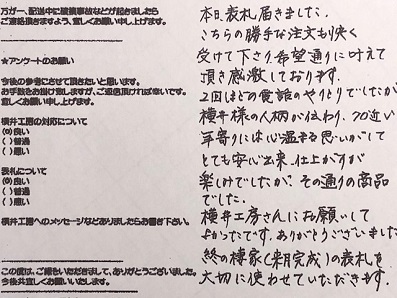 万が一、配送中に破損事故などが起きましたら
ご連絡頂きますよう、宜しくお願い申し上げます。
★アンケートのお願い
今後の参考にさせて頂きたいと思います。
お手数をお掛け致しますが、ご返信頂ければ幸いです。
宜しくお願い申し上げます。
横井工房の対応について
(◎)良い
( )普通
( )悪い
表札について
(◎)良い
( )普通
( )悪い
横井工房へのメッセージなどありましたらお書き下さい。
この度は、ご縁をいただきまして、ありがとうございました。
今後共宜しくお願いいたします。
本日、表札届きました。
こちらの勝手な注文も快く
受けて下さり、希望通りに叶えて
頂き感激しております。
2回ほどの電話のやりとりでしたが
横井様の人柄が伝わり、70近い
年寄りには心温まる思いがして
とても安心出来、仕上がりが
楽しみでしたが、その通りの商品
でした。
横井工房さんにお願いして
よかったです。ありがとうございました
終の棲家(来月完成)の表札を
大切に使わせていただきます。